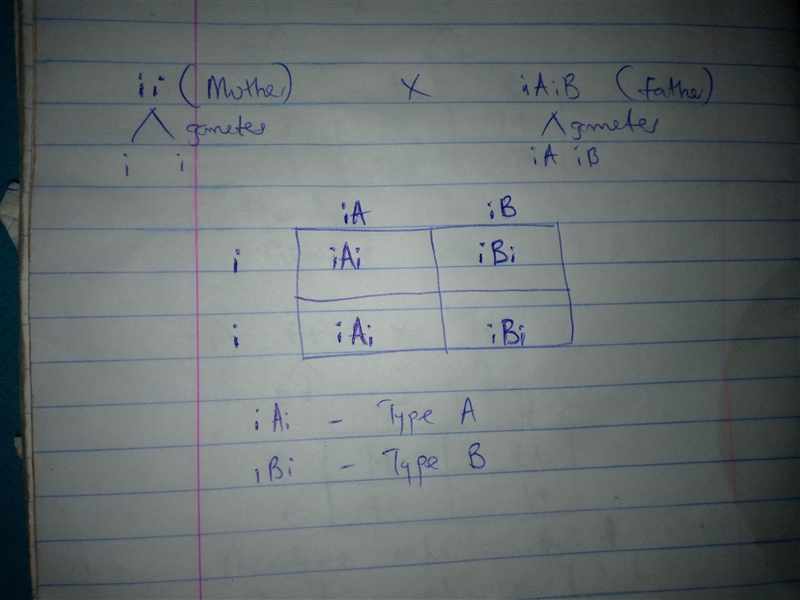 ii (Mother) X iAiB (father)
gametes gametes
i i iA iB
iA iB
i iAi iBi
i iAi iBi
iAi - Type A
iBi - Type B